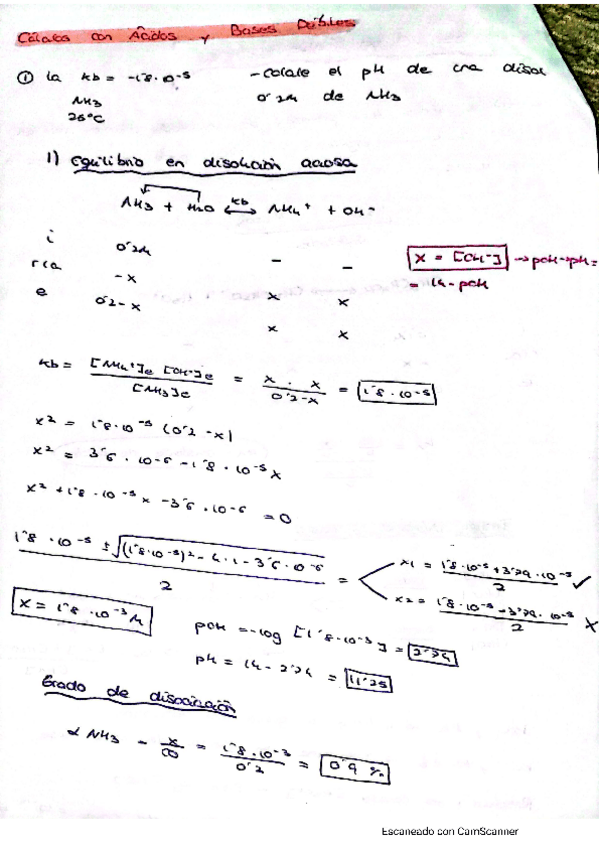 Cálculos con Ácidos y Bases Débiles
① la kb = -1'8·10⁻⁵ - calcule el pH de una disol
NH3 0'2M de NH3
25°C
1) Equilibrio en disolución acuosa
NH3 + H2O ⇄ NH4⁺ + OH⁻
kb
i 0'2M - -
rea -x x x
e 0'2-x x x
x = [OH⁻] → pOH → pH =
= 14 - pOH
kb = [NH4⁺]e [OH⁻]e / [NH3]e = x · x / 0'2-x = 1'8·10⁻⁵
x² = 1'8·10⁻⁵ (0'2 -x)
x² = 3'6·10⁻⁶ - 1'8·10⁻⁵x
x² + 1'8·10⁻⁵x - 3'6·10⁻⁶ = 0
1'8·10⁻⁵ ± √(1'8·10⁻⁵)² - 4·1 - 3'6·10⁻⁶ / 2 =
x1 = 1'8·10⁻⁵ + 3'79·10⁻³ / 2 ✓
x2 = 1'8·10⁻⁵ - 3'79·10⁻³ / 2 X
x = 1'8·10⁻³M
pOH = -log [1'8·10⁻³] = 2'74
pH = 14 - 2'74 = 11'25
Grado de disociación
α NH3 - x/C0 = 1'8·10⁻³ / 0'2 = 0'9 %
Escaneado con CamScanner